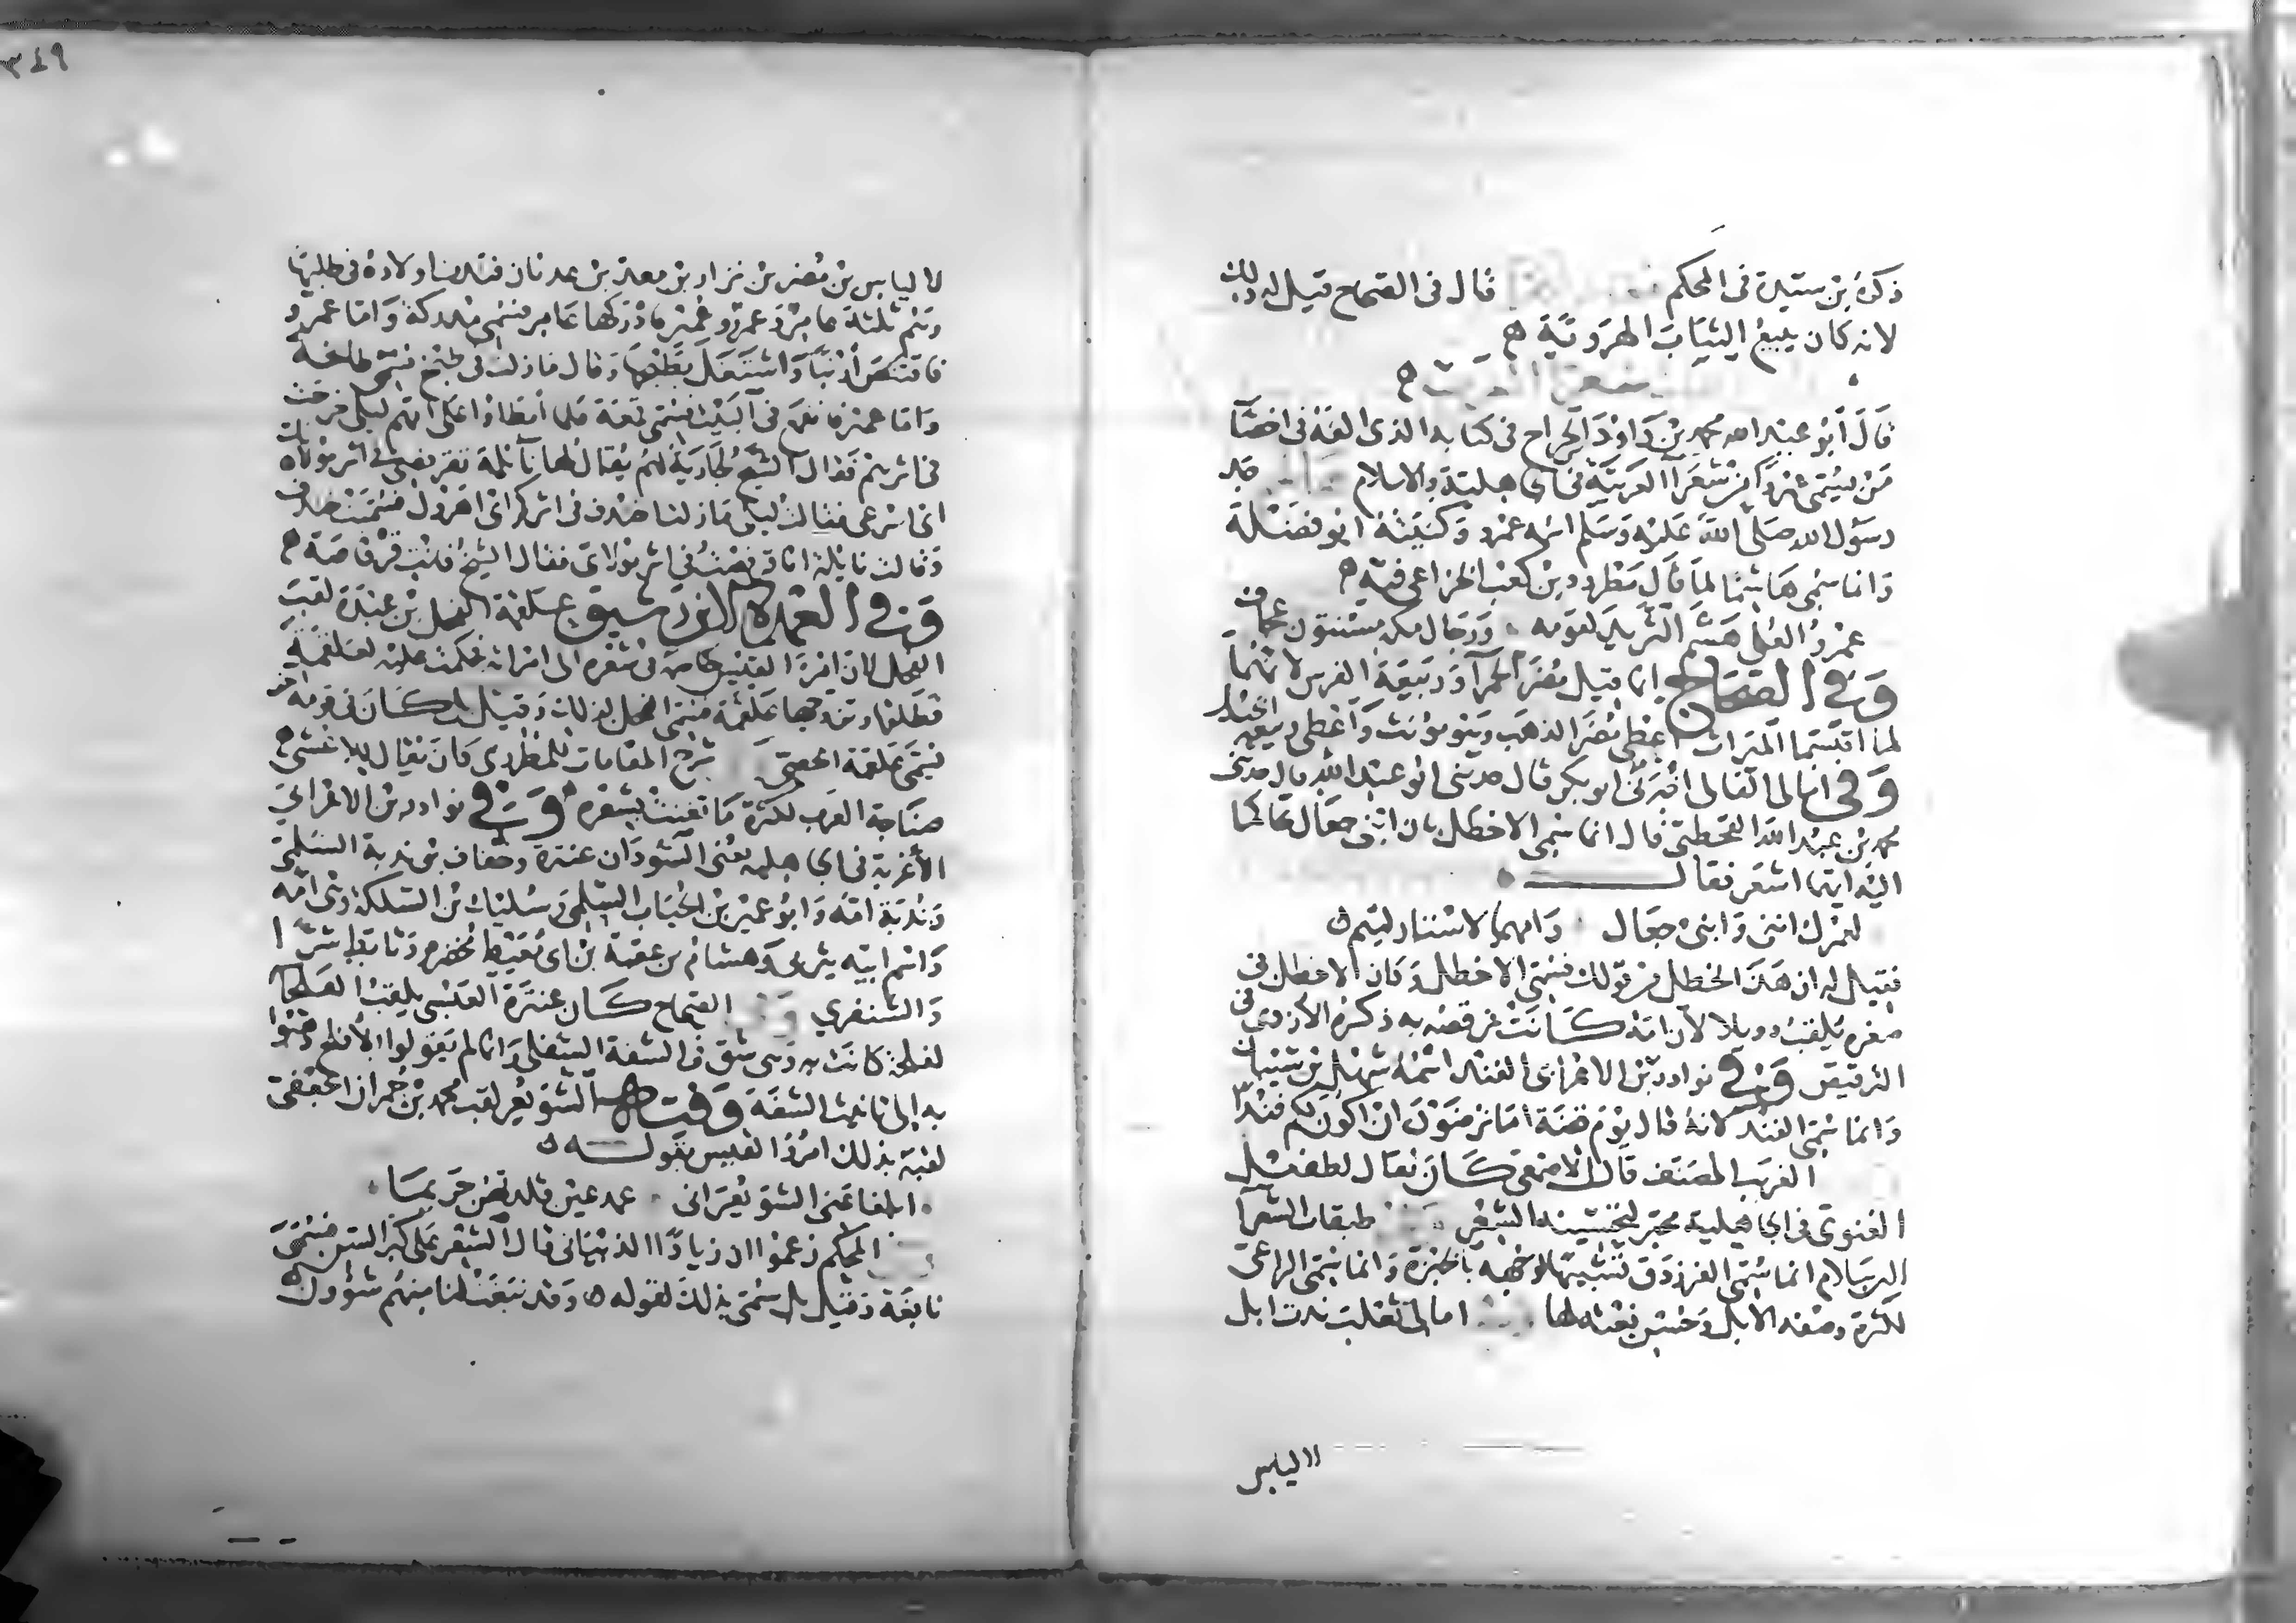 ذكره بن سيدة في المحكم قال في الصحاح قيل له ذلك
لانه كان يبيع الثياب الهروية
قال أبو عبد الله محمد بن داود الجراح في كتابه الذى الفه في احصآ
من يسمى عمرا من شعرآ العربية في الجاهلية والاسلام جد
رسول الله صلى الله عليه وسلم اسمه عمرو وكنيته ابو نضلة
وانما سمى هاشما لما قال مطرود بن كعب الخزاعى فيه
عمرو العلى هشم الثريد لقومه ورجال مكة مسنتون عجاف
وفي الصحاح انما قيل مضر الحمرآ وربيعة الفرس لانهما
لما اقتسما الميراث اعطى مضر الذهب وهو مؤنث وأعطى ربيعة الخيل
وفى امالى القالى اخبرنى ابو بكر قال حدثنى ابو عبد الله قال حدثنى
محمد بن عبيد الله القحطبى قال انما سمى الاخطل لان ابنى جعال تحاكما
اليه ايهما اشعر فقال
لعمرك اننى وابنى جعال وامهما لاستار لئيم
فقيل له ان هذا لخطل من قولك فسمى الاخطل وكان الاخطل في
صغره يلقب دوبلا لأن امه كانت ترقصه به ذكره الأزدى في
الترقيص وفي نوادر بن الاعرابى الفند اسمه شهل بن شيبان
وانما سمى الفند لانه قال يوم قضة اما ترضون ان اكون لكم فندا
الغريب المصنف قال الاصمعى كان يقال لطفيل
الغنوى في الجاهلية محبر لتحسينه الشعر طبقات الشعرآ
لابن سلام انما سمى الفرزدق تشبيها لوجهه بالخبزة وانما سمى الراعى
لكثرة وصفه الابل وحسن نعته لها امالى ثعلب ندت ابل
الليس
٣٤٩
لالياس بن مضر بن نزار بن معد بن عدنان فندب اولاده في طلبها
وهم ثلثة عامر وعمرو وعمير فادركها عامر فسمى مدركة واما عمرو
فاقتنص أرنبا واشتغل بطبخها وقال مازلت في طبخ فسمى طابخة
واما عمير فانقمع في البيت فسمى قمعة فلما أبطاوا على امهم ليلى خرجت
في اثرهم فقال الشيخ لجارية لهم يقال لها نآئلة تقرفصى في اثر مولاتك
انما سرعى فقالت ليلى مازلت اخندف في اثركم اى اهرول فسميت خندف
وقالت نايلة انا قرفصت في اثر مولاتى فقال الشيخ فانت قرفاصة
وفي العمدة لابن رشيق علقمة الفحل بن عبدة لقب
الفحل لان امرأ القيس خاصمه في شعره الى امرأته فحكمت عليه لعلقمة
فطلقها وتزوجها علقمة فسمى الفحل لذلك وقيل بل كان في قومه اخر
فسمى علقمة الخصى شرح المقامات للمطرزى كان يقال للاعشى
صناجة العرب لكثرة ما تغنت بشعره وفي نوادر بن الاعرابى
الأغربة في الجاهلية يعنى السودان عنترة وخفاف بن ندبة السلمى
وندبة امه وابو عمير بن الحباب السلمى وسليك بن السلكة وهى امه
واسم ابيه يثربى وهشام بن عقبة بن ابى معيط مخضرم وتابط شرا
والشنفري الصحاح كان عنترة العبسى يلقب الفلحا
لفلحة كانت به وهى شق في الشفة السفلى وانما لم يقولوا الافلح ذهبوا
به إلى تانيث الشفة وفيها الشويعر لقب محمد بن حمران الجعفى
لقبه بذلك امرؤ القيس بقوله
ابلغا عنى الشويعر انى عمد عين قلدتهن حريما
المحكم زعموا ان زيادا الذبيانى قال الشعر على كبر السن فسمى
نابغة وقيل بل سمى بذلك لقوله وقد نبغت لنا منهم شؤون